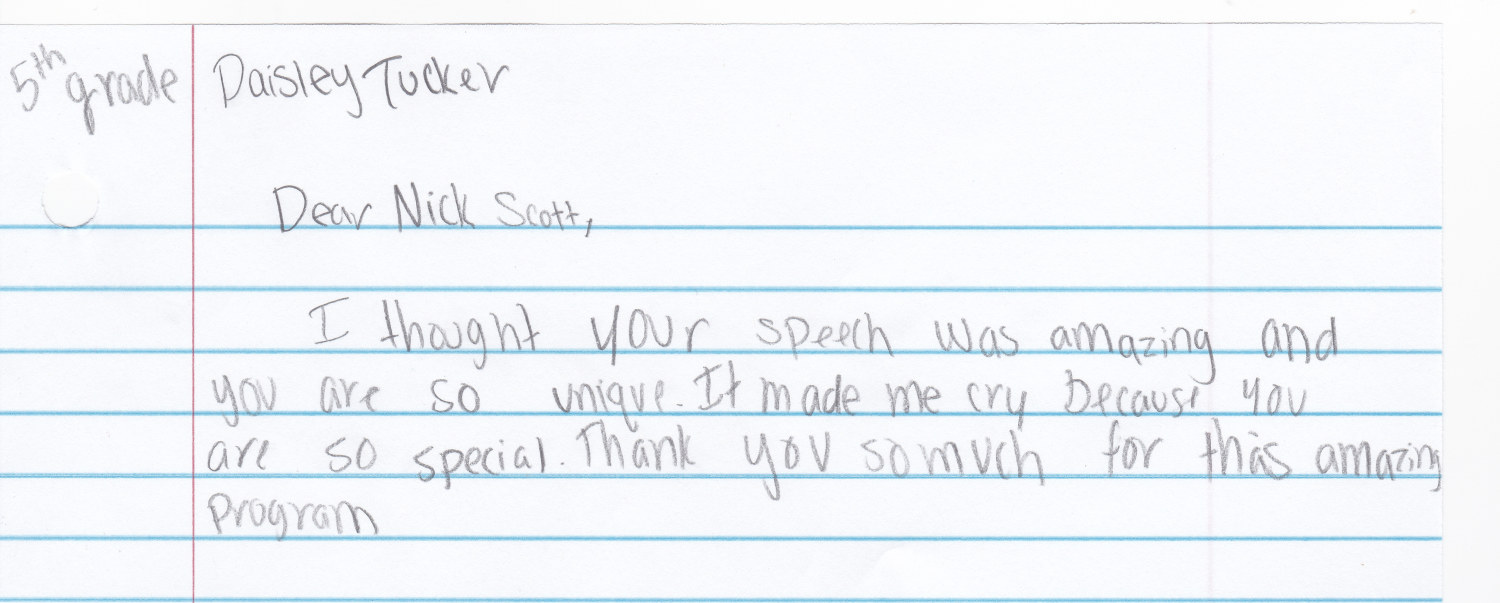 5th grade Daisley Tucker
Dear Nick Scott,
I thought your speech was amazing and
you are so unique. It made me cry because you
are so special. Thank you so much for this amazing
program